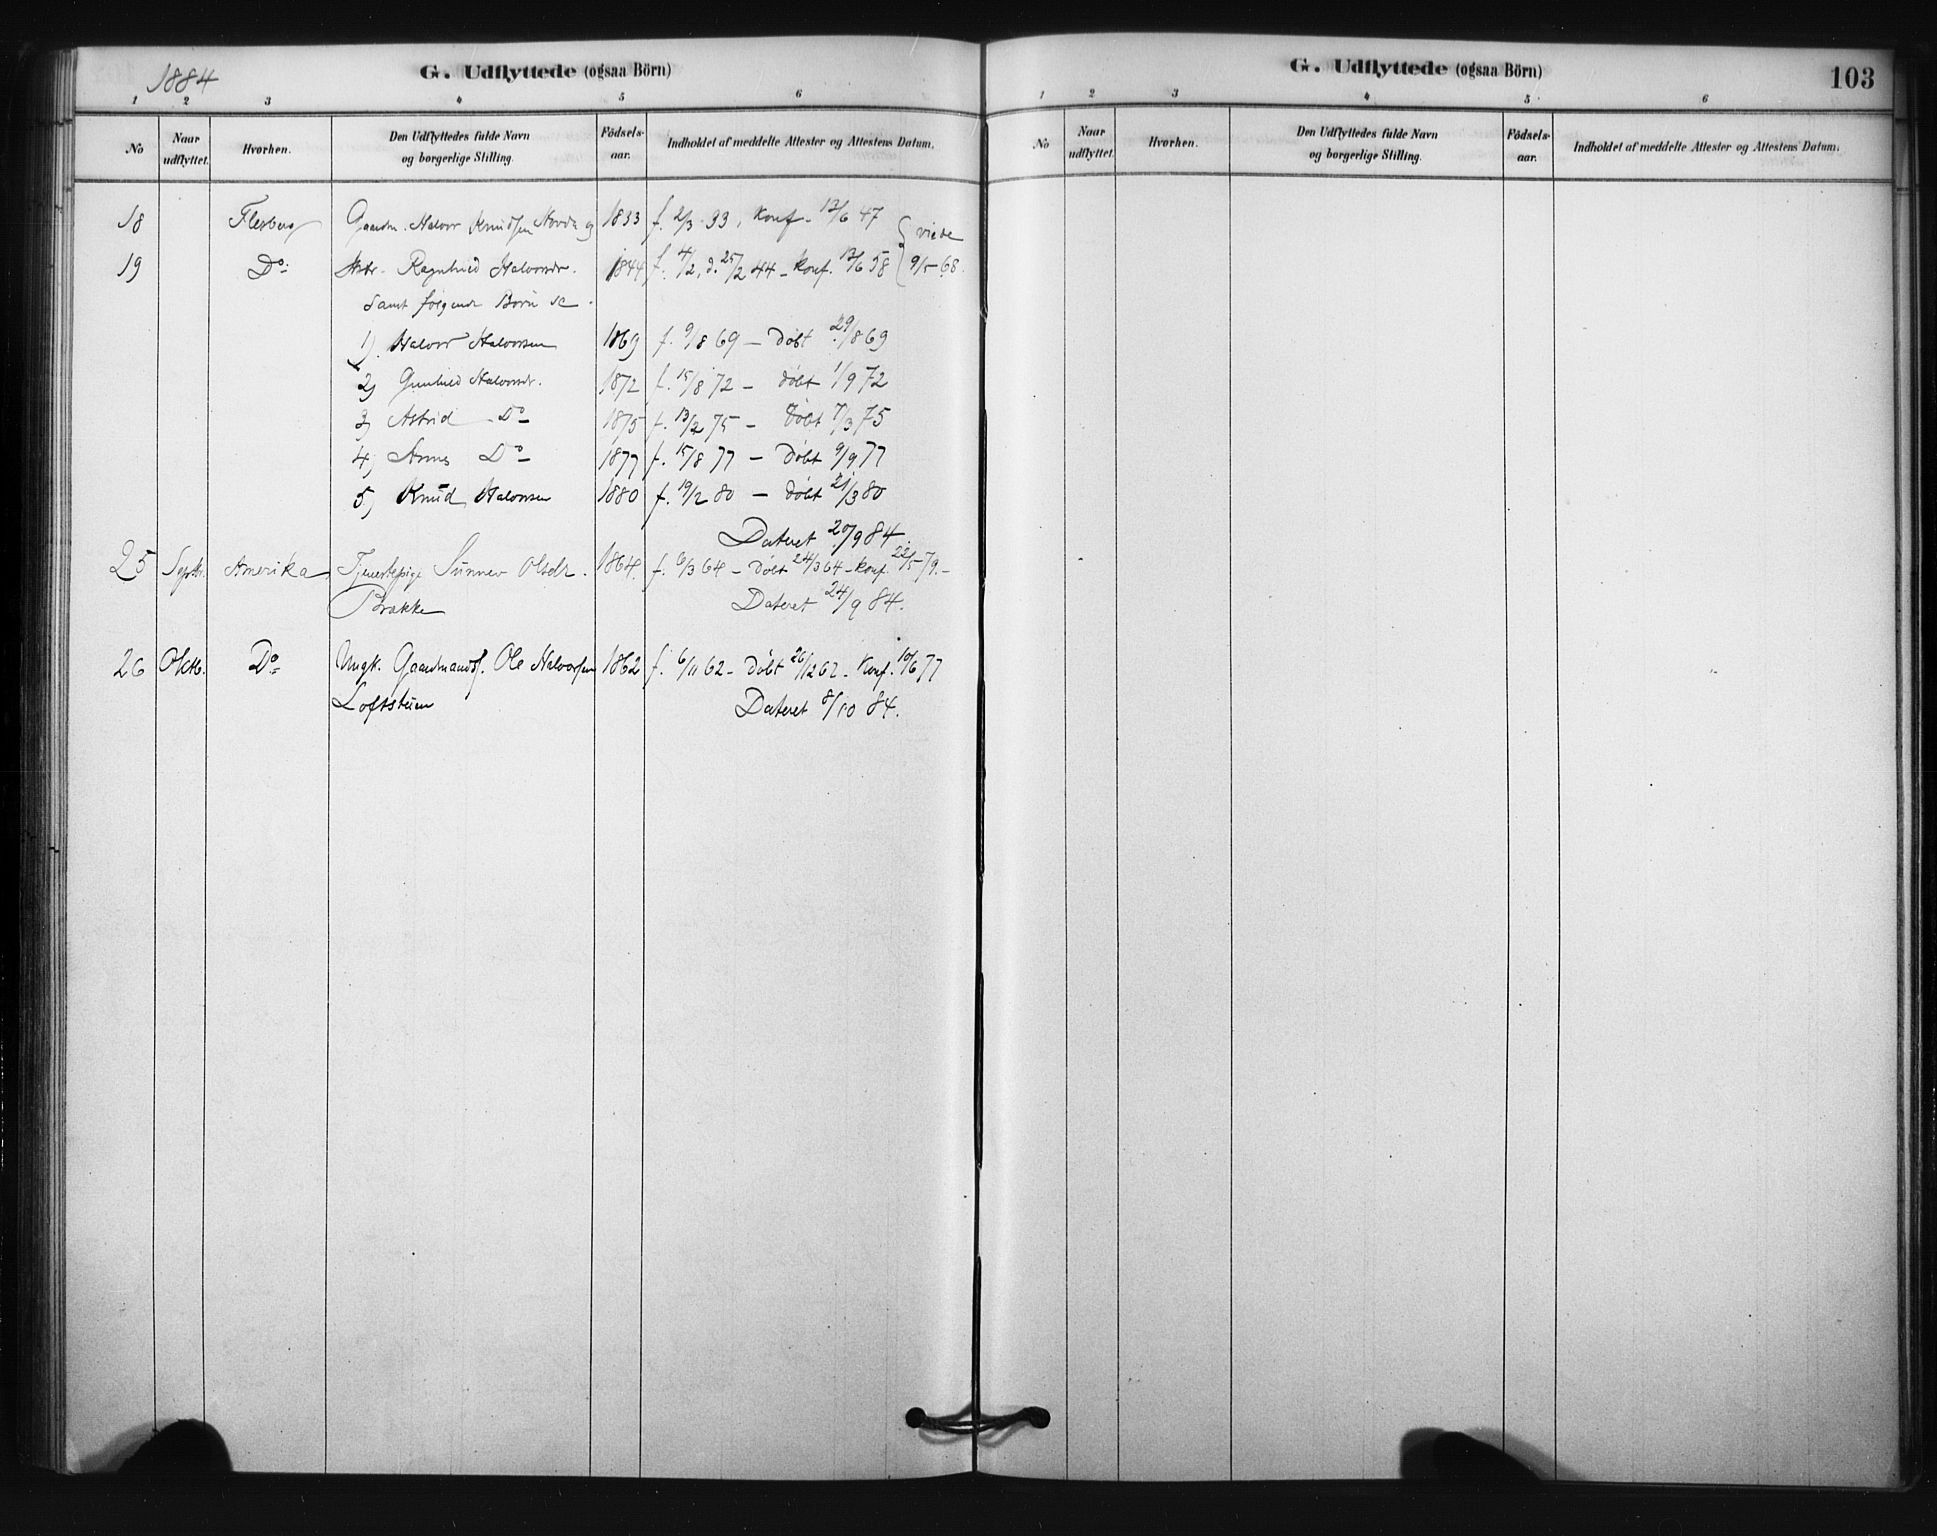 1884
G. Udflyttede (ogsaa Börn)
1 2 3 4 5 6
No
Naar udflyttet.
Hvorhen.
Den Udflyttedes fulde Navn og borgerlige Stilling.
Födsels-aar.
Indholdet af meddelte Attester og Attestens Datum.
18 Flesberg Gaardm. Halvor Knudsen og 1833 f. 2/3 33, Konf. 13/6 47 } viede
19 Do Ragnhild Halvorsdr. 1844 f. 4/2, d. 25/2 44 - Konf. 13/6 58 } 9/5 68.
samt følgende Børn
1) Halvor Halvorsen 1869 f. 9/8 69 - Døbt 29/8 69
2) Gunhild Halvorsdr. 1872 f. 15/8 72 - døbt 1/9 72
3) Astrid Do 1875 f. 13/2 75 - døbt 7/3 75
4) Do 1877 f. 15/8 77 - døbt 9/9 77
5) Knud Halvorsen 1880 f. 19/2 80 - døbt 21/3 80
Dateret 20/9 84.
25 Septr. Amerika Tjenestepige Sunnev Olsdr. 1864. f. 6/3 64 - Døbt 24/3 64 - Konf. 22/5 79. -
Brække Dateret 24/9 84.
26 Oktb. Do Ungk. Gaardmandss. Ole Halvorsen 1862 f. 6/11 62 - Døbt 26/12 62 - Konf. 10/6 77
Loftsteien Dateret 8/10 84.
G. Udflyttede (ogsaa Börn)
103
1 2 3 4 5 6
No
Naar udflyttet.
Hvorhen.
Den Udflyttedes fulde Navn og borgerlige Stilling.
Födsels-aar.
Indholdet af meddelte Attester og Attestens Datum.